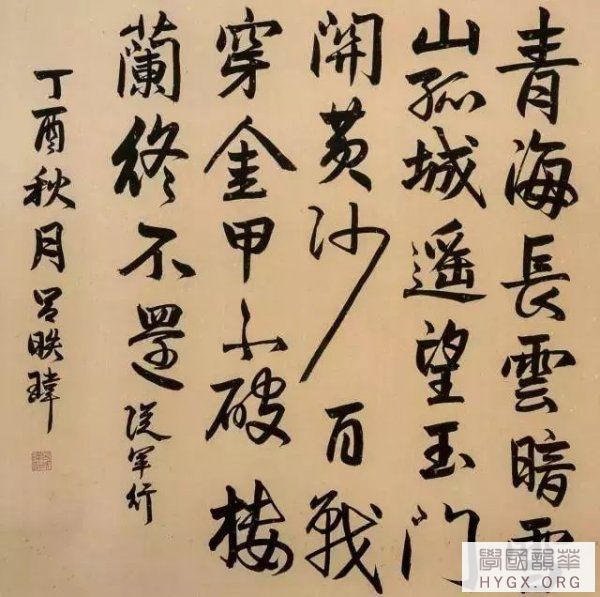 青海長雲暗雪
山孤城遥望玉門
關黄沙百戰
穿金甲不破樓
蘭終不還 從軍行
丁酉秋月 呂昳瑋
學國韻華
HYGX.ORG